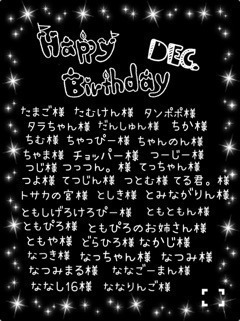 Happy DEC.
Birthday
たまご様 たむけん様 タンポポ様
タラちゃん様 だんしゅん様 ちか様
ちむ様 ちゃっぴー様 ちゃんのん様
ちゃま様 チョッパー様 つーじー様
つじ様 つっつん。様 てっちゃん様
つよ様 てつじん様 つとむ様 てる君。様
トサカの宮様 としき様 とみながりん様
ともしげろけろぴー様 ともともん様
ともぴろ様 ともぴろのお姉さん様
ともや様 どらひろ様 なかじ様
なつき様 なっちゃん様 なつみ様
なつみまる様 ななごーまん様
ななし16様 ななりんご様